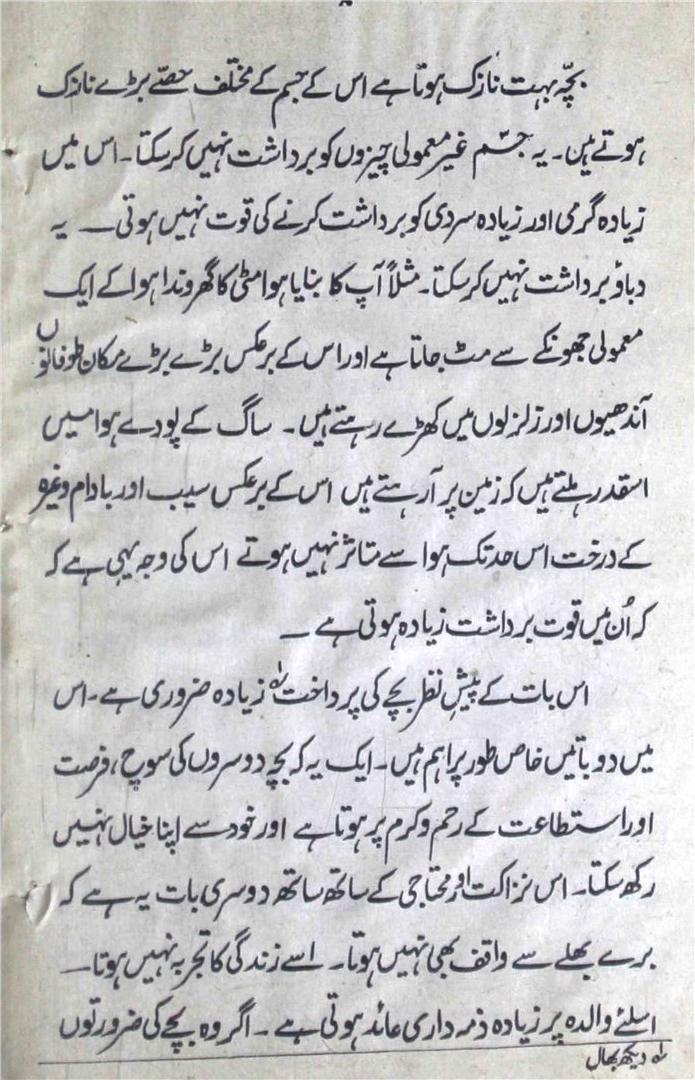 ۸
بچّہ بہت نازک ہوتا ہے اس کے جسم کے مختلف حصّے بڑے نازک
ہوتے ہیں۔ یہ جسم غیر معمولی چیزوں کو برداشت نہیں کر سکتا۔ اس میں
زیادہ گرمی اور زیادہ سردی کو برداشت کرنے کی قوت نہیں ہوتی۔ یہ
دباؤ برداشت نہیں کر سکتا۔ مثلاً آپ کا بنایا ہوا مٹی کا گھروندا ہوا کے ایک
معمولی جھونکے سے مٹ جاتا ہے اور اس کے برعکس بڑے بڑے مکان طوفانوں
آندھیوں اور زلزلوں میں کھڑے رہتے ہیں۔ ساگ کے پودے ہوا میں
اسقدر ہلتے ہیں کہ زمین پر آ رہتے ہیں اس کے برعکس سیب اور بادام وغیرہ
کے درخت اس حد تک ہوا سے متاثر نہیں ہوتے اس کی وجہ یہی ہے کہ
کہ اُن میں قوت برداشت زیادہ ہوتی ہے ۔
اس بات کے پیشِ نظر بچے کی پرداخت لہ زیادہ ضروری ہے۔ اس
میں دو باتیں خاص طور پر اہم ہیں۔ ایک یہ کہ بچہ دوسروں کی سوچ، فرصت
اور استطاعت کے رحم و کرم پر ہوتا ہے اور خود سے اپنا خیال نہیں
رکھ سکتا۔ اس نزاکت اور محتاجی کے ساتھ ساتھ دوسری بات یہ ہے کہ
برے بھلے سے واقف بھی نہیں ہوتا۔ اسے زندگی کا تجربہ نہیں ہوتا۔
اسلئے والدہ پر زیادہ ذمہ داری عائد ہوتی ہے۔ اگر وہ بچے کی ضرورتوں
لہ دیکھ بھال